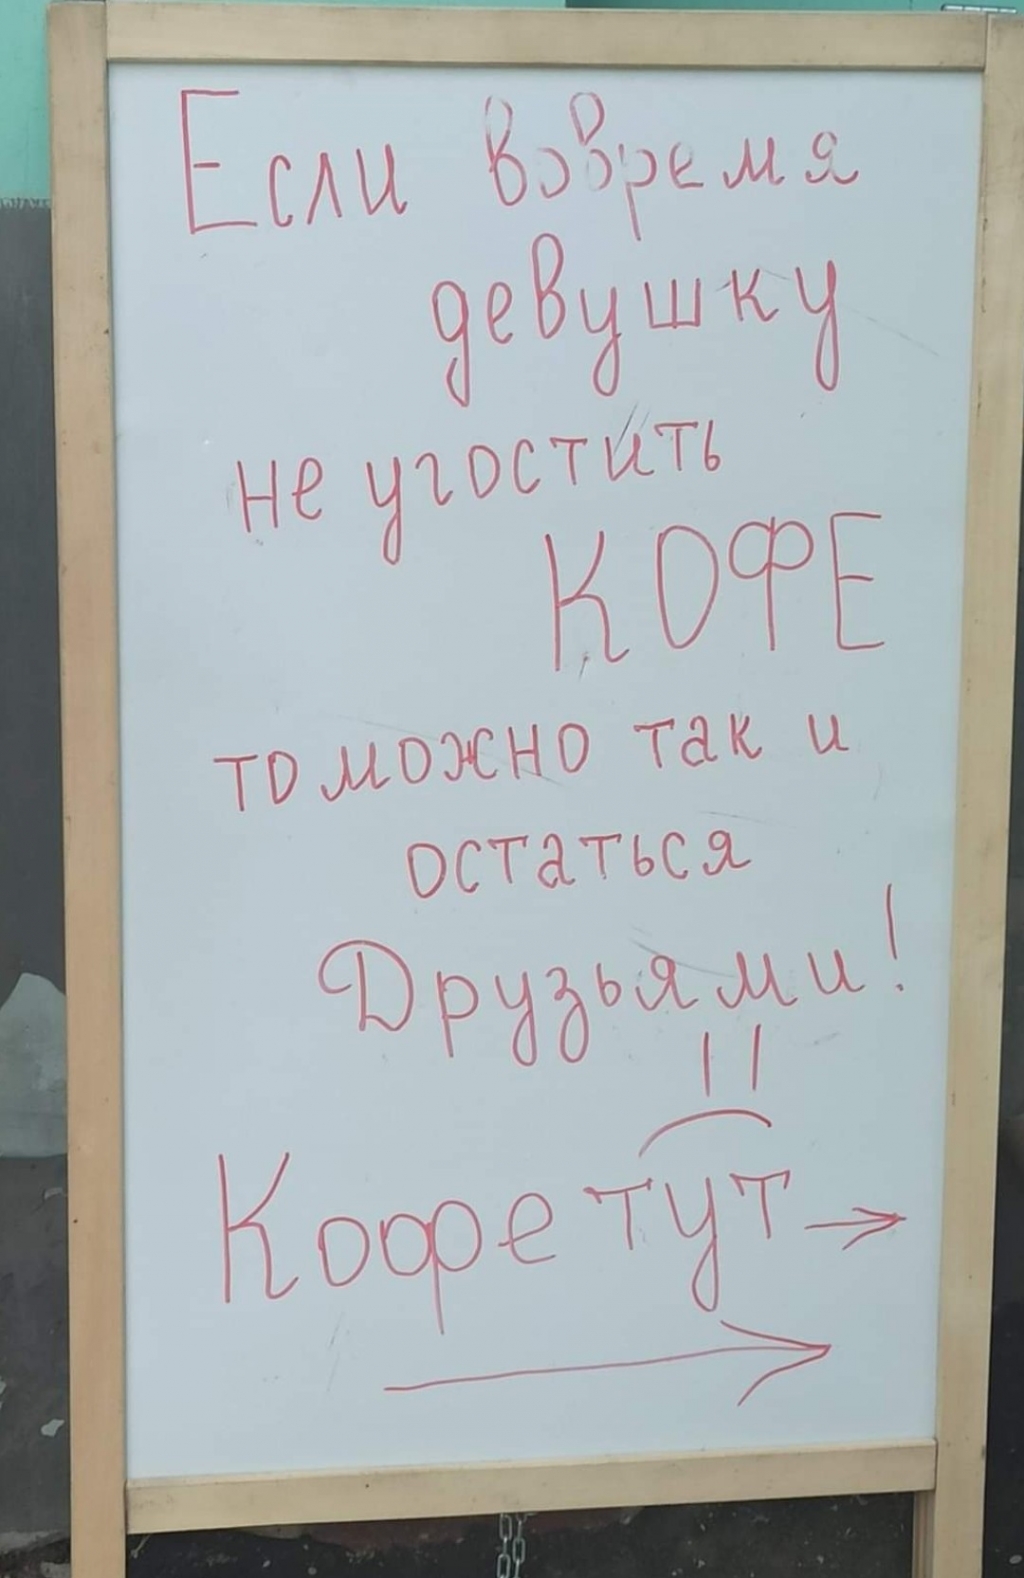 Если вовремя
девушку
не угостить
КОФЕ
то можно так и
остаться
Друзьями!
Кофе тут →
→